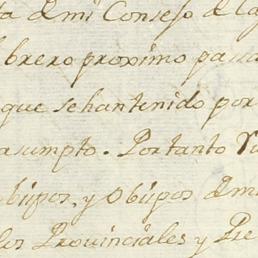 ta de mi Consejo de la
brero proximo passa
que se han tenido por
asumpto. Por tanto
bispos, y Obispos de mi
los Provinciales y Pre